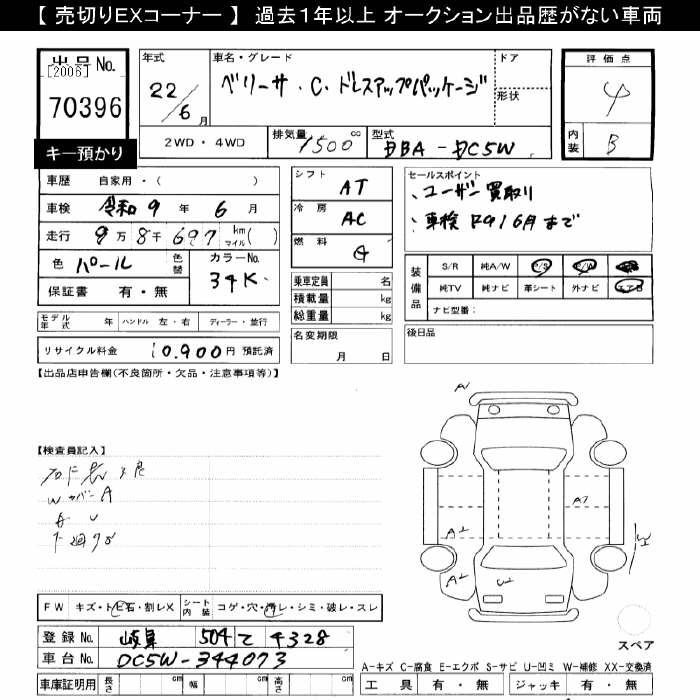 【 売切りEXコーナー 】 過去1年以上 オークション出品歴がない車両
出品No. 年式 車名・グレード ドア 評価点
[2006] 22/6月 ベリーサ・C・ドレスアップパッケージ 形状 4
70396
キー預かり 2WD・4WD 排気量 1500 cc 型式 DBA-DC5W 内装 B
車歴 自家用・( ) シフト AT セールスポイント
車検 令和9年6月 冷房 AC 、ユーザー買取り
走行 9万8千697 km マイル( ) 燃料 G 、車検R9/6月まで
色 パール 色替 カラーNo. 34K 装備品 S/R 純A/W P/S P/W
保証書 有・無 乗車定員 名 純TV 純ナビ 革シート 外ナビ エアB
積載量 kg ナビ型番:
モデル年式 年 ハンドル 左・右 ディーラー・並行 総重量 kg
リサイクル料金 10,900円 預託済 名変期限 月 日 後日品
【出品店申告欄(不良箇所・欠品・注意事項等)】
A
【検査員記入】
Wカバー A
A7
下廻りサビ
A2
A2
FW キズ・トビ石・割レX シート内装 コゲ・穴・汚レ・シミ・破レ・スレ
登録No. 岐阜 504 て 4328
スペア
車台No. DC5W-344073
A-キズ C-腐食 E-エクボ S-サビ U-凹ミ W-補修 XX-交換済
車庫証明用 長さ cm 幅 cm 高さ cm 工具 有・無 ジャッキ 有・無